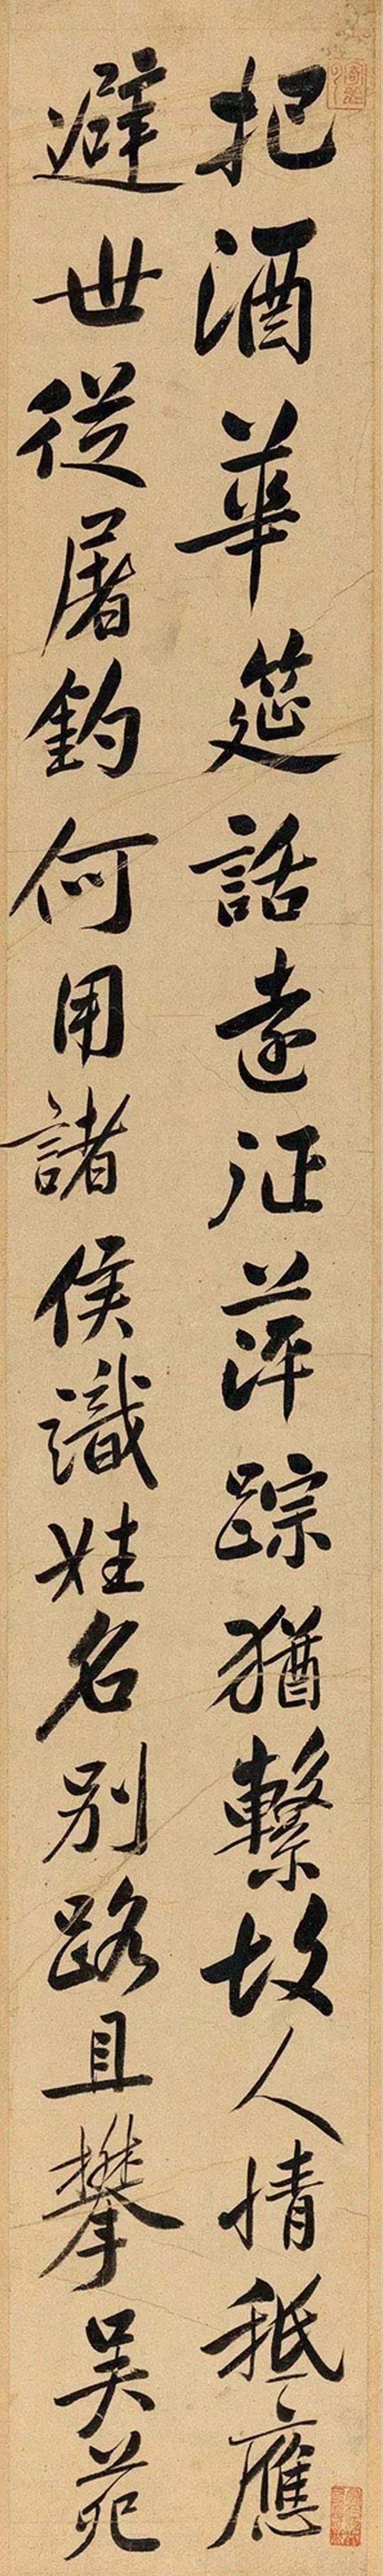 把酒華筵話遠征萍踪猶繫故人情秖應
避世從屠釣何用諸侯識姓名別路且攀吴苑